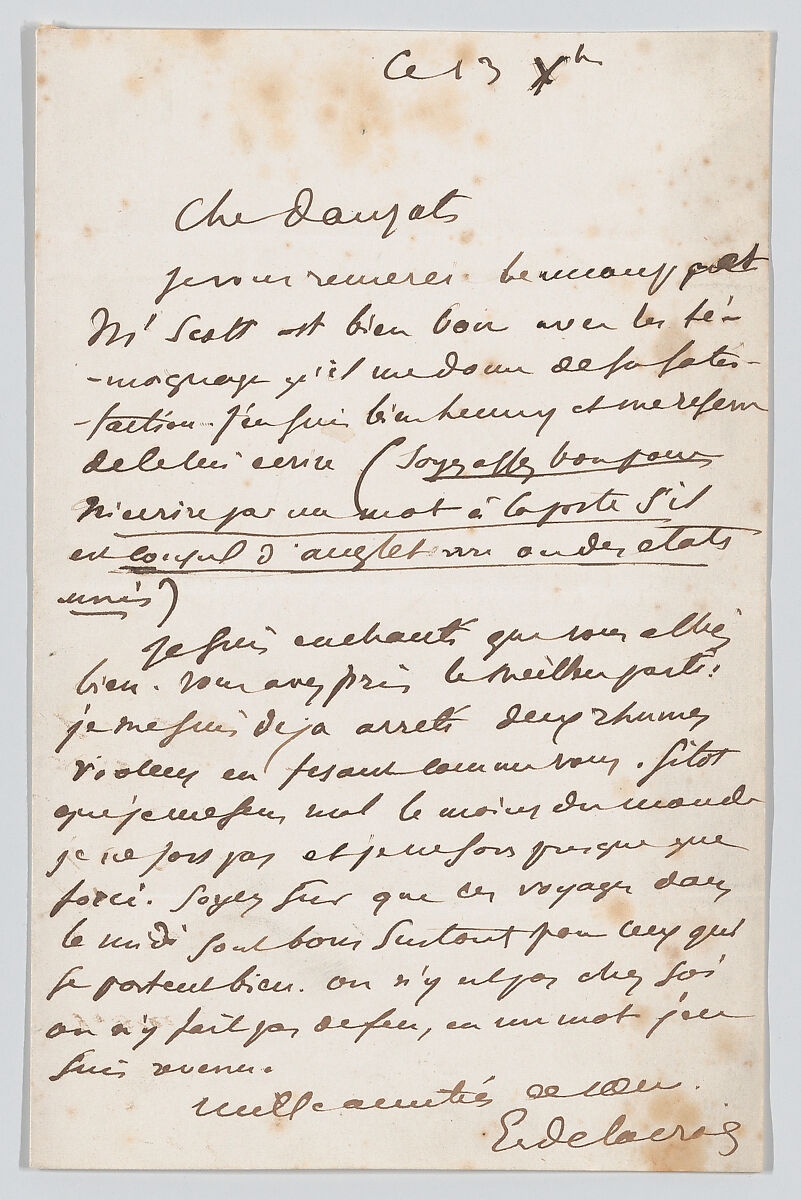 Ce 13 Xbr
Cher Dauzats
Je vous remercie beaucoup et
Mr Scott est bien bon avec les té-
-moignages qu'il me donne de sa satis-
-faction. J'en suis bien heureux et me réserve
de le lui ecrire (Soyez assez bon pour
m'ecrire par un mot à la poste s'il
est consul d'angleterre ou des etats
unis)
Je suis enchanté que vous alliez
bien. vous avez pris le meilleur parti:
je me suis deja arreté deux rhumes
violens en fesant comme vous. Sitot
que je me sens mal le moins du monde
je ne sors pas et je ne sors presque que
forcé. Soyez sur que ces voyages dans
le midi sont bons surtout pour ceux qui
se portent bien. on n'y est pas chez soi
on n'y fait pas de feu, en un mot j'en
suis revenu.
mille amitiés de cœur.
EugDelacroix